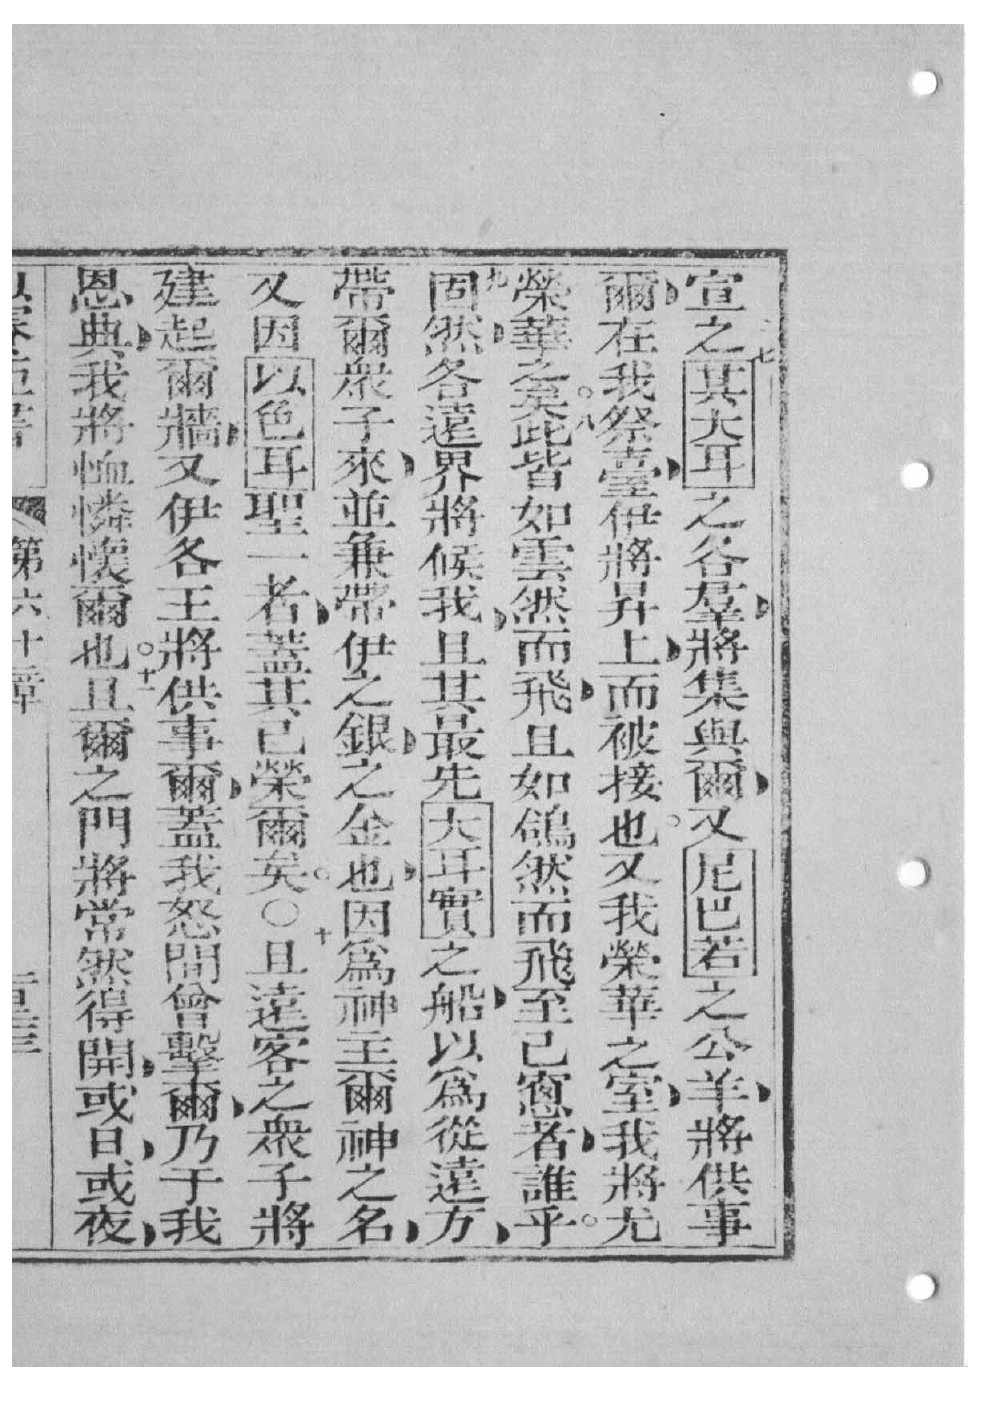 宣之七其大耳之各羣將集與爾又尼巴若之公羊將供事
爾在我祭臺伊將昇上而被接也又我榮華之室我將尤
榮華之矣八此皆如雲然而飛且如鴿然而飛至己窻者誰乎
九固然各遠界將候我且其最先大耳實之船以爲從遠方
帶爾衆子來並兼帶伊之銀之金也因爲神王爾神之名
又因以色耳聖一者蓋其已榮爾矣〇十且遠客之衆子將
建起爾牆又伊各王將供事爾蓋我怒間曾擊爾乃于我
恩典我將恤憐懷爾也十一且爾之門將常然得開或日或夜
第六十章